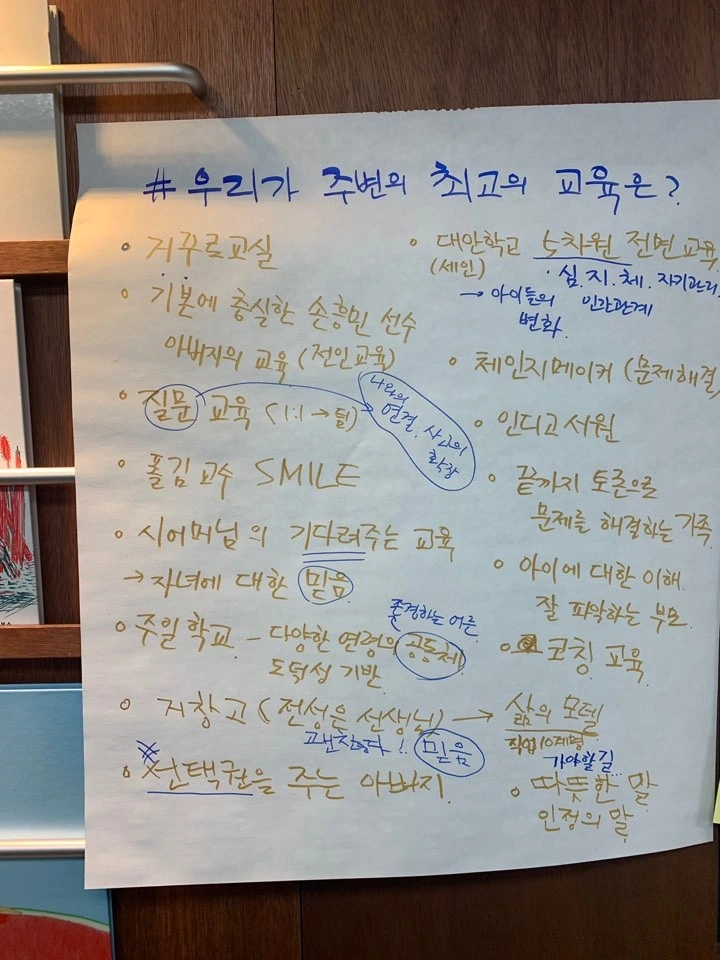 # 우리가 주변의 최고의 교육은?
◦ 거꾸로교실
◦ 기본에 충실한 손흥민 선수
아버지의 교육 (전인교육)
◦ 질문 교육 (1:1 → 팀)
나와의
연결. 사고의
확장
◦ 폴김 교수 SMILE
◦ 시어머님의 기다려주는 교육
→ 자녀에 대한 믿음
◦ 주일학교 - 다양한 연령의 공동체
존경하는 어른
도덕성 기반
◦ 거창고 (전성은 선생님) → 삶의 모델
괜찮다!. 믿음
직업10계명
가야할 길
◦ 선택권을 주는 아빠지.
◦ 대안학교 5차원 전면교육
(세인)
심.지.체.자기관리
인간관계
→ 아이들의
변화
◦ 체인지메이커 (문제해결
◦ 인디고서원
◦ 끝까지 토론으로
문제를 해결하는 가족.
◦ 아이에 대한 이해.
잘 파악하는 부모.
◦ 코칭 교육.
◦ 따뜻한 말
인정의 말